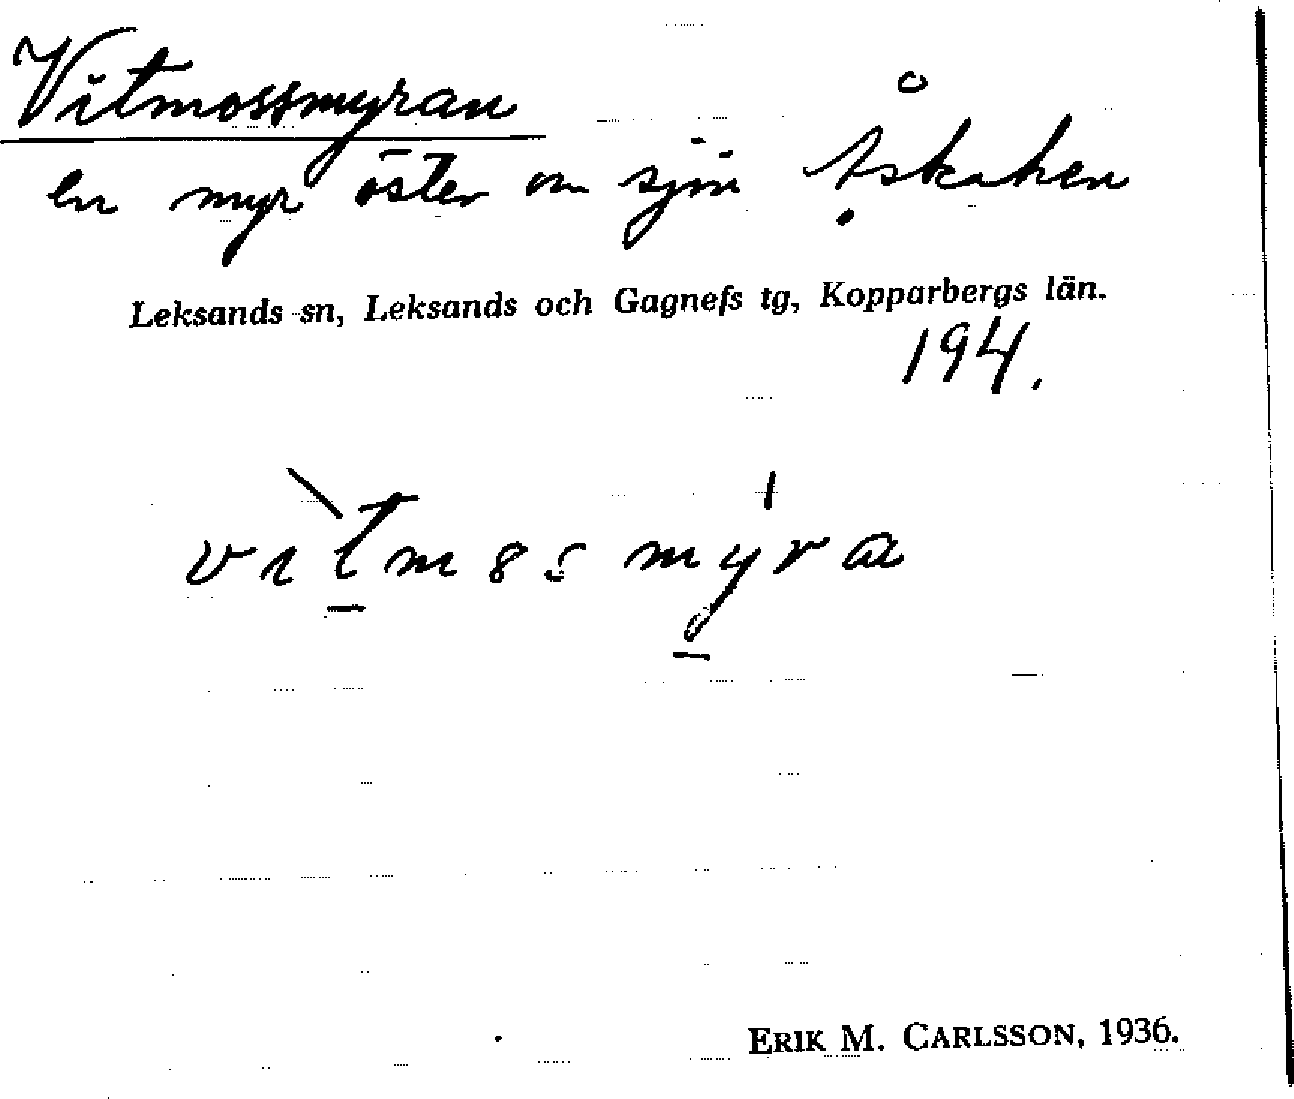 Vitmossmyran
en myr öster om sjön Åskaken
Leksands sn, Leksands och Gagnefs tg, Kopparbergs län.
194.
ERIK M. CARLSSON, 1936.